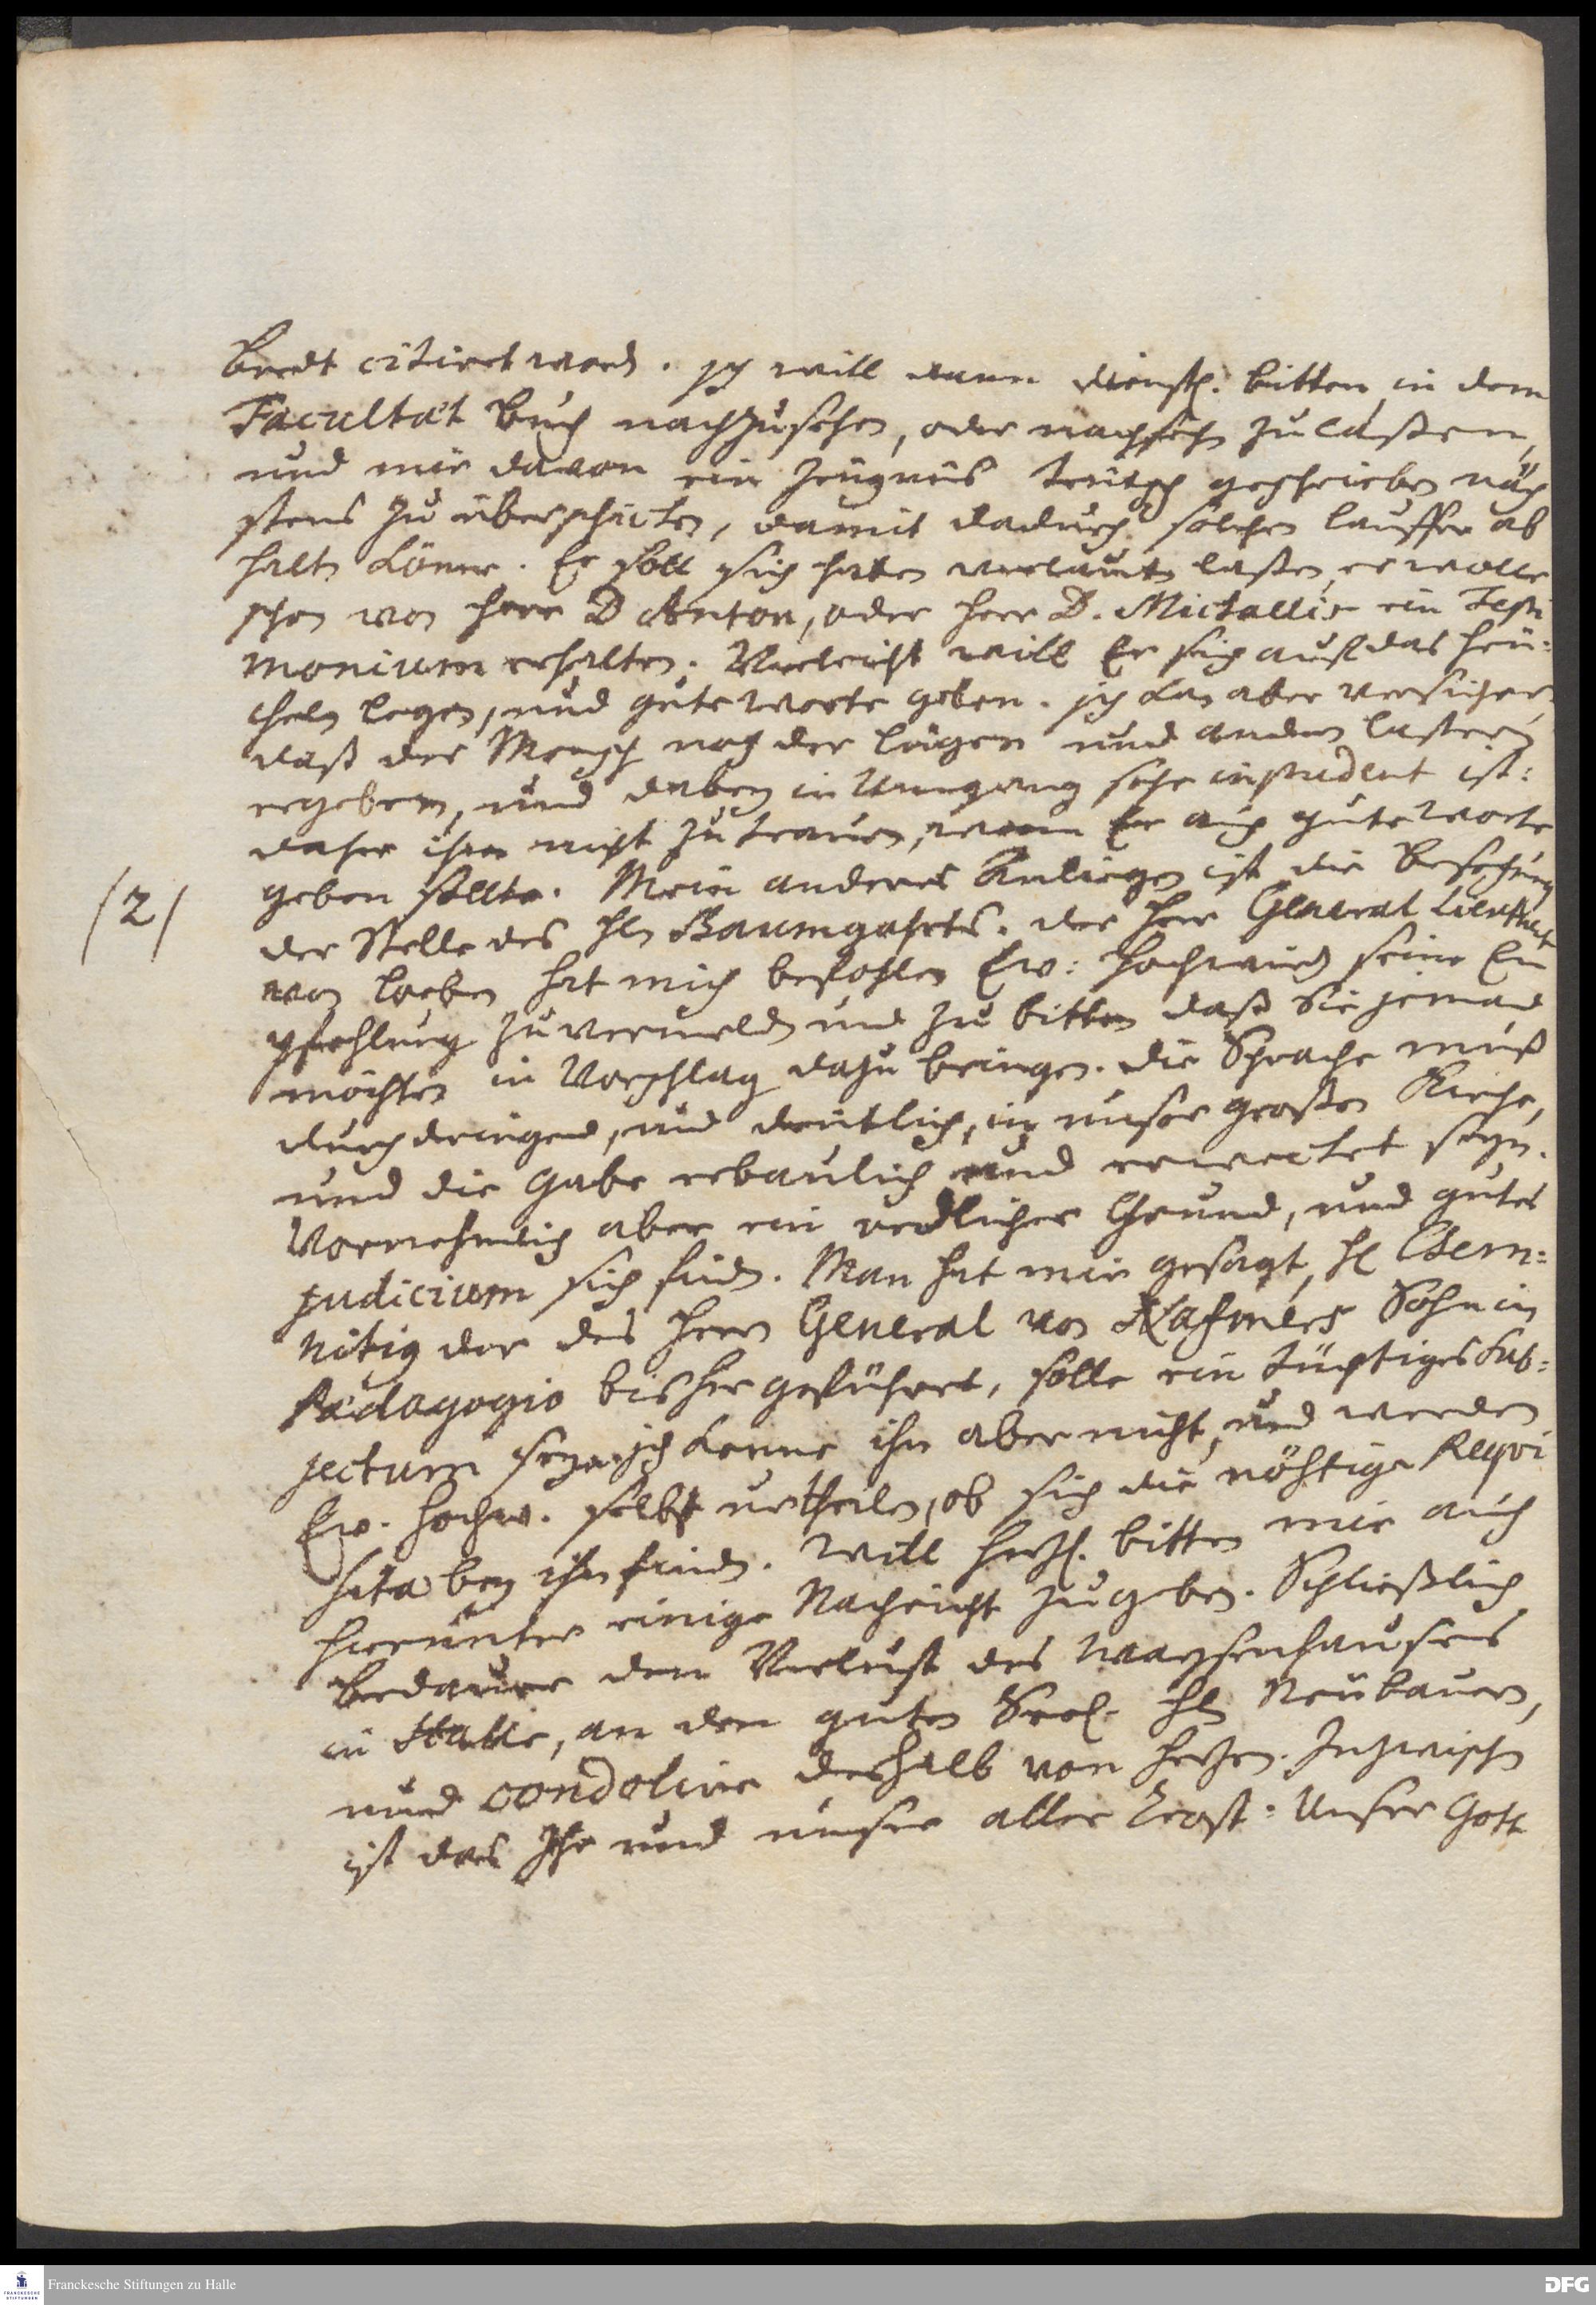 Bredt citiret word. Ich will dann dienstl. bitten in dem
Facultät Buch nachzusehen, oder nachsehn zu laßen,
und mir davon ein Zeugnüs teutsch geschrieben näch
stens zu überschicken, damit dadurch solchen Lauffer ab
halten könne. Er soll sich haben verlauten laßen, er wolle
schon von Herr D Anton, oder Herr D. Michaelis ein Testi
monium erhalten. Vieleicht will Er sich auf das heu=
cheln legen, und gute Worte geben. Ich kan aber versichern,
daß der Mensch noch der Lügen und andern Lastern
ergeben, und dabey im Umgang sehr inpudent ist:
daher ihm nicht zu trauen, wenn Er auch gute Worte
/2/ geben sollte. Mein anderes Anliegen ist die Besetzung
der Stelle des Hln Baumgartes. Der Herr General Lieutnant
von Loeben hat mich befohlen Ew: Hochwürd seine Em
pfehlung zu vermelden und zu bitten daß Sie jemand
möchten in Vorschlag dazu bringen. Die Sprache muß
durchdringend, und deutlich, in unser großen Kirche,
und die Gabe erbaulich und erwecket seyn.
Vornehmlich aber ein redlicher Grund, und gutes
judicium sich finden. Man hat mir gesagt, Hl Chem=
nitig der des Herrn General von Nazmers Sohn in
Pädagogio bisher geführet, solle ein tüchtiges Sub=
jectum seyn, ich kenne ihn aber nicht, und werden
Ew. Hochw. selbst urtheilen, ob sich die nöhtige Requi
sita bey ihm finden. Will herzl. bitten mir auch
hierunter einige Nachricht zu geben. Schließlich
Bedaure den Verlust des Waysenhauses
in Halle, an dem guten Seel. Hln Neubauern,
und condolire deshalb von Herzen. Inzwischen
ist das Ihr und unser aller Trost: Unser Gott
Franckesche Stiftungen zu Halle
DFG